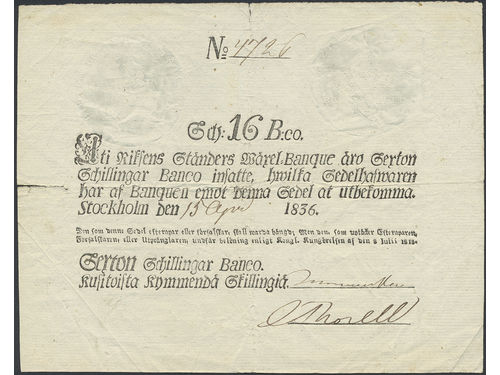 No 4726
Sch: 16 B:co.
Uti Riksens Ständers Wäxel-Banque äro Sexton
Schillingar Banco insatte, hwilka Sedelhafwaren
har af Banquen emot denna Sedel at utbekomma.
Stockholm den 15 Apr 1836.
Den som denna Sedel eftergör eller förfalskar, skall warda hängd; Men den, som uptäcker Eftergöraren,
Förfalskaren eller Utprånglaren, undfår belöning enligt Kongl. Kungörelsen af den 8 Julii 1818.
Sexton Schillingar Banco.
Kusitoista Kymmendä Skillingiä.